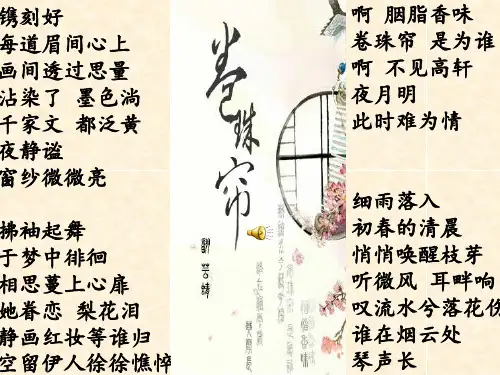 镌刻好
每道眉间心上
画间透过思量
沾染了 墨色淌
千家文 都泛黄
夜静谧
窗纱微微亮
拂袖起舞
于梦中徘徊
相思蔓上心扉
她眷恋 梨花泪
静画红妆等谁归
空留伊人徐徐憔悴
卷珠帘
啊 胭脂香味
卷珠帘 是为谁
啊 不见高轩
夜月明
此时难为情
细雨落入
初春的清晨
悄悄唤醒枝芽
听微风 耳畔响
叹流水兮落花伤
谁在烟云处
琴声长